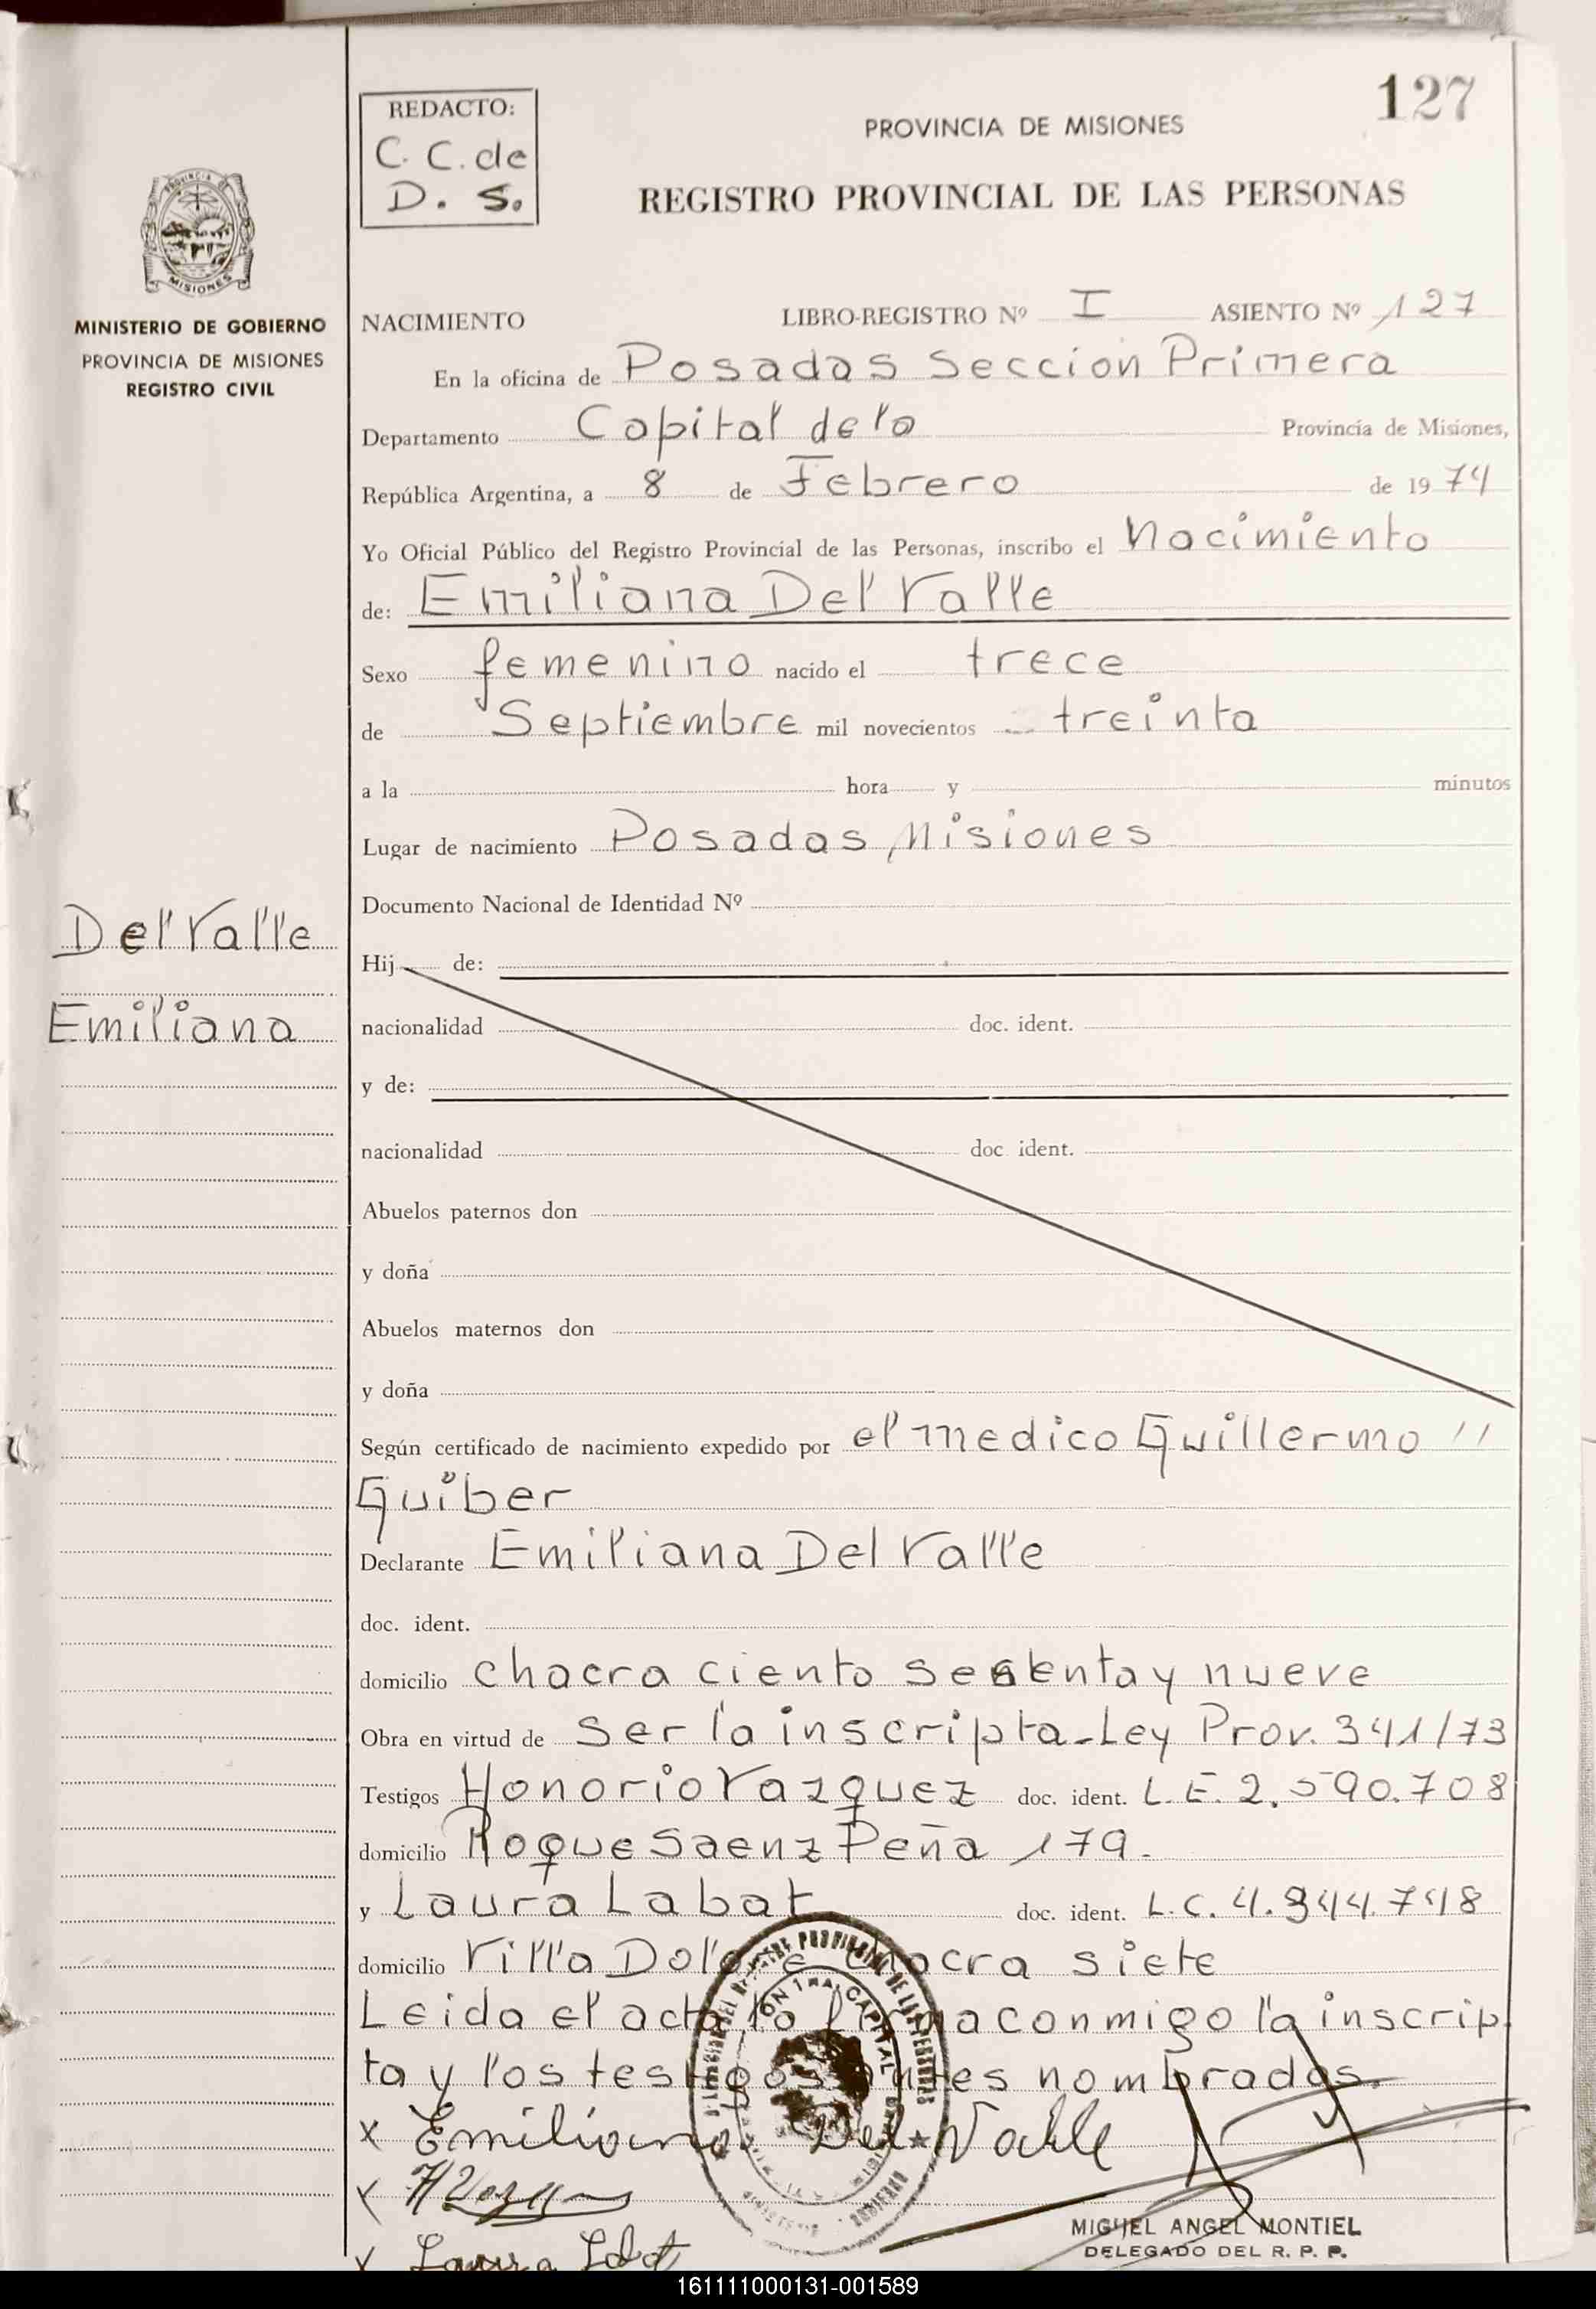 127
REDACTO:
C. C. de
D. S.
PROVINCIA DE MISIONES
REGISTRO PROVINCIAL DE LAS PERSONAS
MISIONES
MINISTERIO DE GOBIERNO
PROVINCIA DE MISIONES
REGISTRO CIVIL
NACIMIENTO LIBRO-REGISTRO Nº I ASIENTO Nº 127
En la oficina de Posadas Seccion Primera
Departamento Capital de la Provincia de Misiones,
República Argentina, a 8 de Febrero de 19 74
Yo Oficial Público del Registro Provincial de las Personas, inscribo el Nacimiento
de: Emiliana Del Valle
Sexo femenino nacido el trece
de Septiembre mil novecientos treinta
a la hora y minutos
Lugar de nacimiento Posadas Misiones
Documento Nacional de Identidad Nº
Del Valle
Emiliana
Hij de:
nacionalidad doc. ident.
y de:
nacionalidad doc ident.
Abuelos paternos don
y doña
Abuelos maternos don
y doña
Según certificado de nacimiento expedido por el medico Guillermo //
Guiber
Declarante Emiliana Del Valle
doc. ident.
domicilio chacra ciento y nueve
Obra en virtud de ser la inscripta-Ley Prov. 341/73
Testigos Honorio Vazquez doc. ident. L.E. 2.590.708
domicilio Roque Saenz Peña 179.
y Laura Labat doc. ident. L.C. 4.944.748
domicilio Villa chacra siete
Leida el acta, la firma conmigo la inscrip
ta y los testigos antes nombrados.
x Emiliana Del Valle
x
x Laura Labat
MIGUEL ANGEL MONTIEL
DELEGADO DEL R. P. P.
161111000131-001589